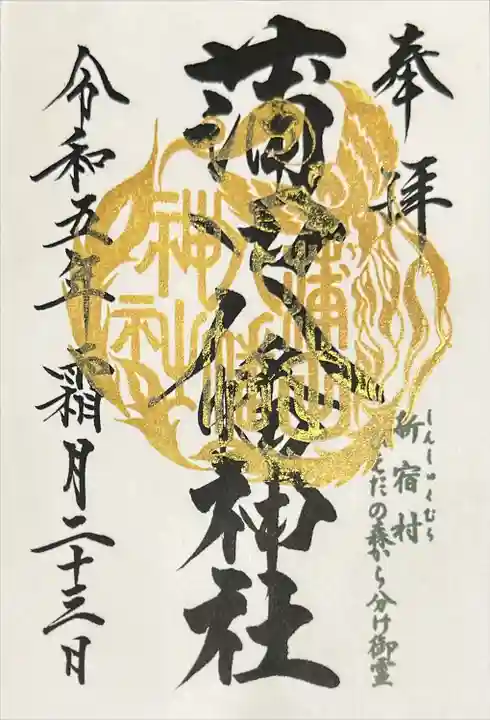 奉拝
しんしゅくむら
新宿村
ひえだの森から分け御霊
蒲田八幡神社
神社
令和五年霜月二十三日